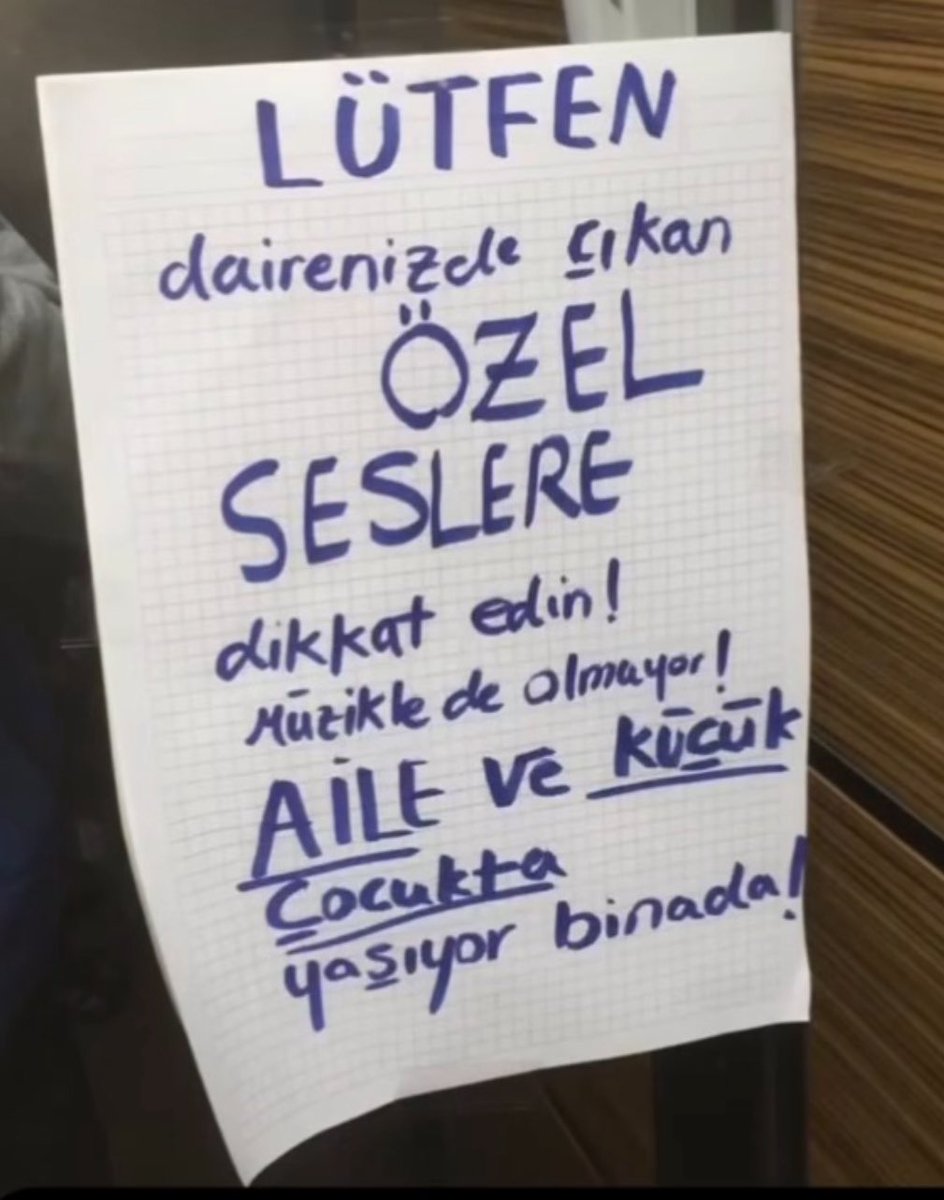 LÜTFEN
dairenizde çıkan
ÖZEL
SESLERE
dikkat edin!
Müzikle de olmayor!
AİLE ve küçük
Çocukta
yaşıyor binada!